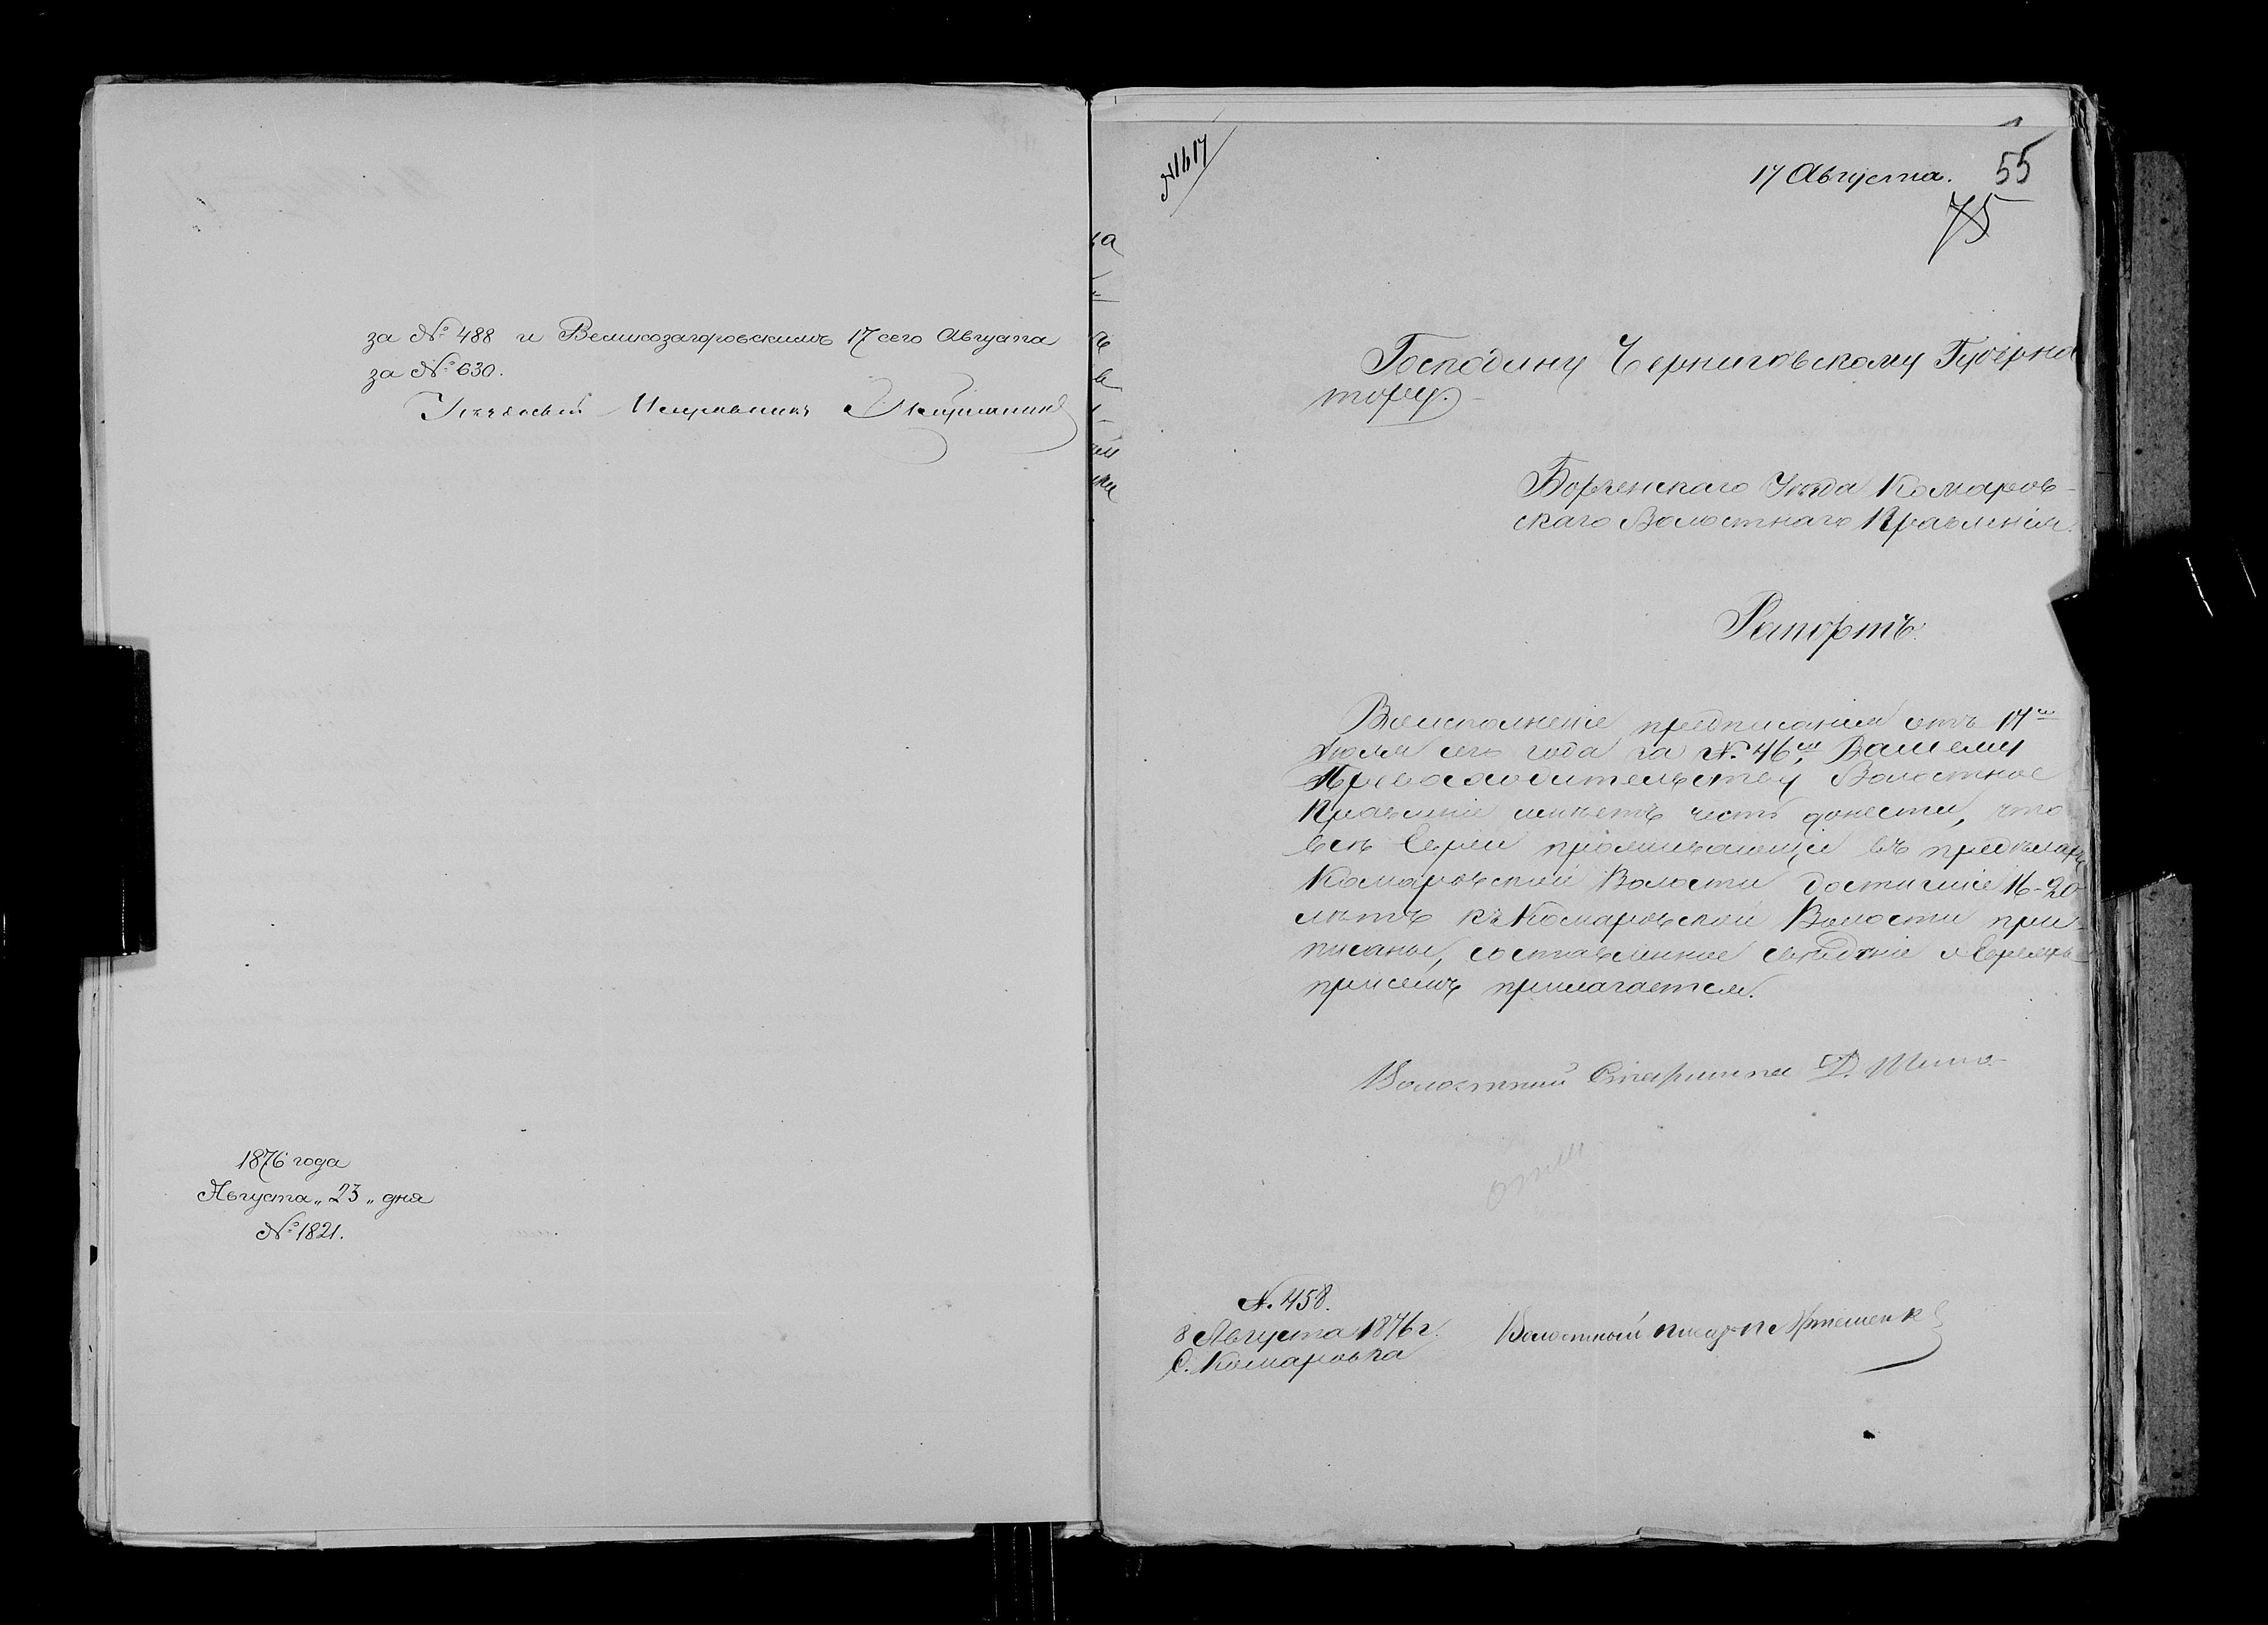 за № 488 и Великозагоровскимъ 17 сего Августа
за № 630.
Уѣздный Исправникъ
1876 года
Августа „23„ дня
№ 1821.
17 Августа.
55
75
Господину Черниговскому Губерна
тору.
Борзенскаго Уѣзда Комаров-
скаго Волостнаго Правленія.
Рапортъ.
Воисполненіе предписанія отъ 17го
Июля сего года за №. 46м, Вашему
Превосходительству Волостное
Правленіе имѣетъ честь донести, что
всѣ Евреи проживающіе въ предѣлахъ
Комаровской Волости достигшіе 16-20
лѣтъ къ Комаровской Волости при-
писаны, составленное свѣдѣніе о Евреяхъ
присемъ прилагается.
Волостный Старшина
№. 458.
8 Августа 1876 г.
С. Комаровка
Волостный писарь